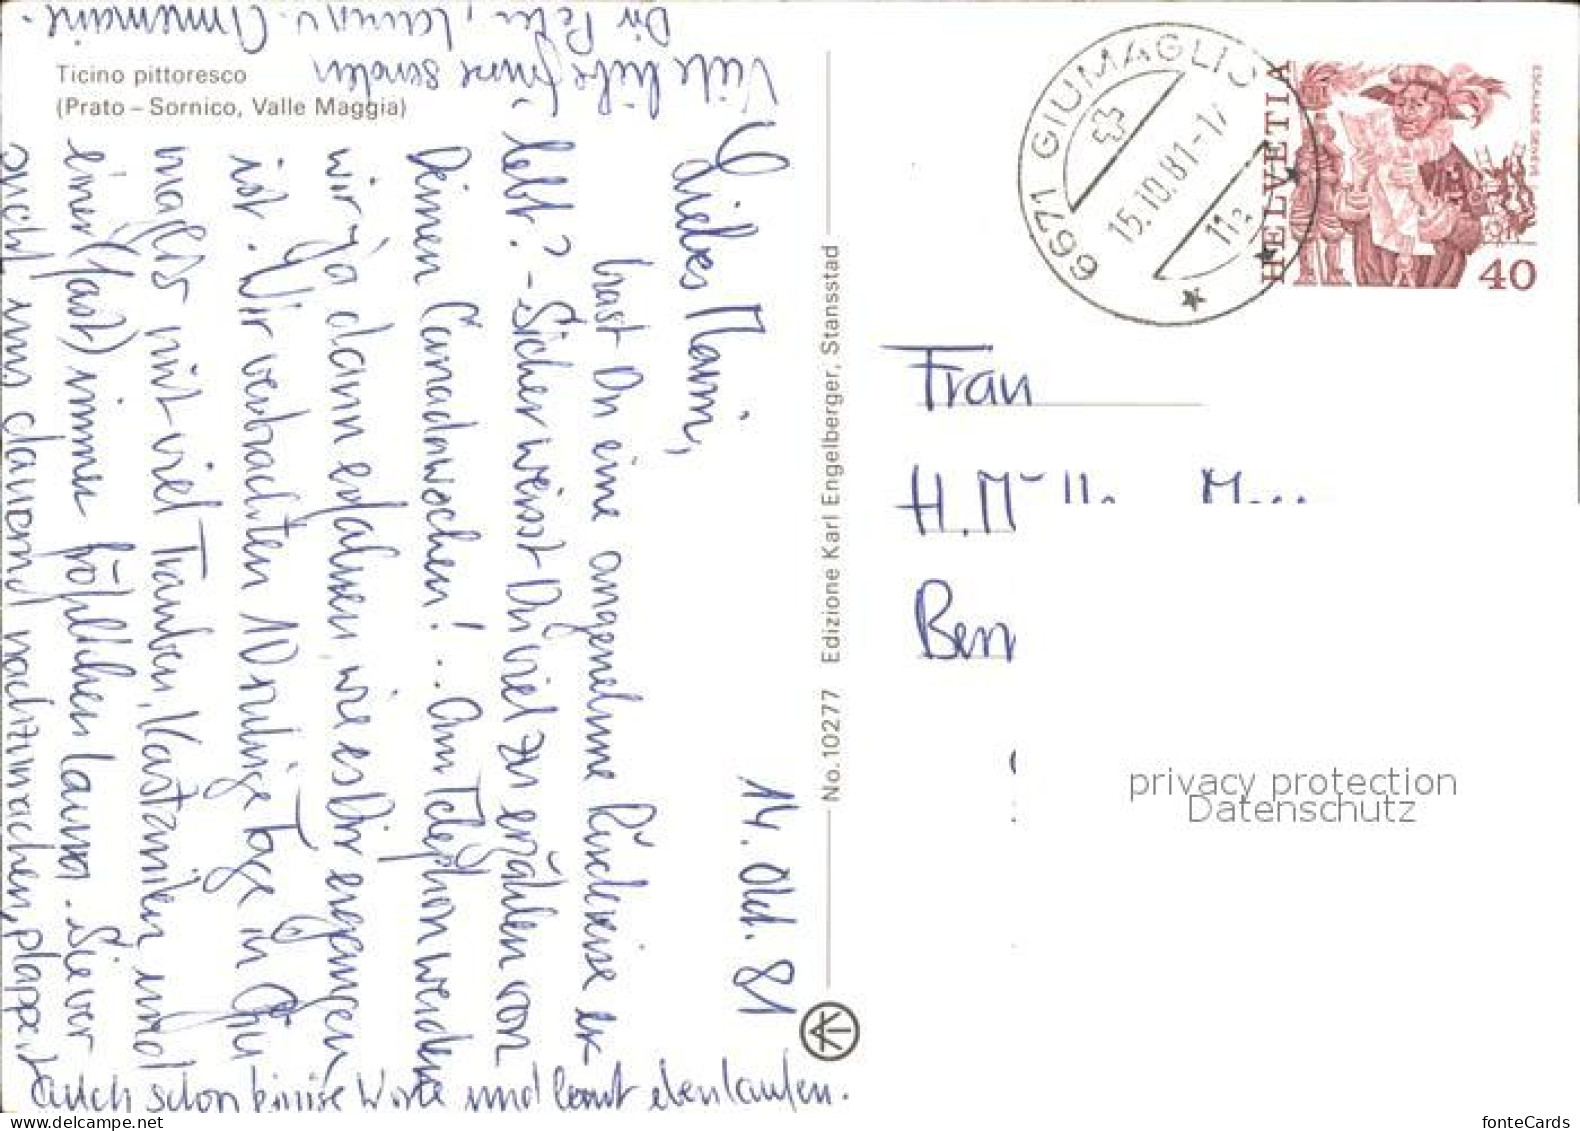 Ticino pittoresco
(Prato – Sornico, Valle Maggia)
14. Okt. 81
Liebes Mami,
hast Du eine angenehme Rückreise er-
lebt? - Sicher weisst Du viel zu erzählen von
Deinen Canadawochen! .. Am Telephon werden
wir ja dann erfahren wie es Dir ergangen
ist. Wir verbrachten 10 ruhige Tage in
maglio mit viel Trauben, Kastanien und
einer (fast) immer fröhlichen Laura. Sie ver
sucht uns dauernd nachzumachen, plappert
auch schon einige Worte und lernt eben laufen.
Viele liebe Grüsse senden
Dir Peter, Laura u. Annemarie.
No. 10277 Edizione Karl Engelberger, Stansstad
6671 GIUMAGLIO
15.10.81-17
11a
HELVETIA
ESCALADE GENÈVE
40
Frau
H. M
Bern
privacy protection
Datenschutz
fonteCards